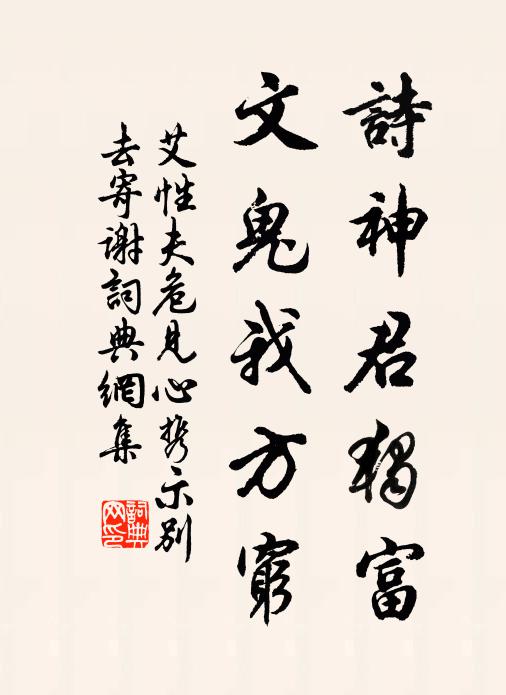 詩神君獨富
文鬼我方窮
艾性夫危見心携示別
去寄謝詞典網集
詞典网印